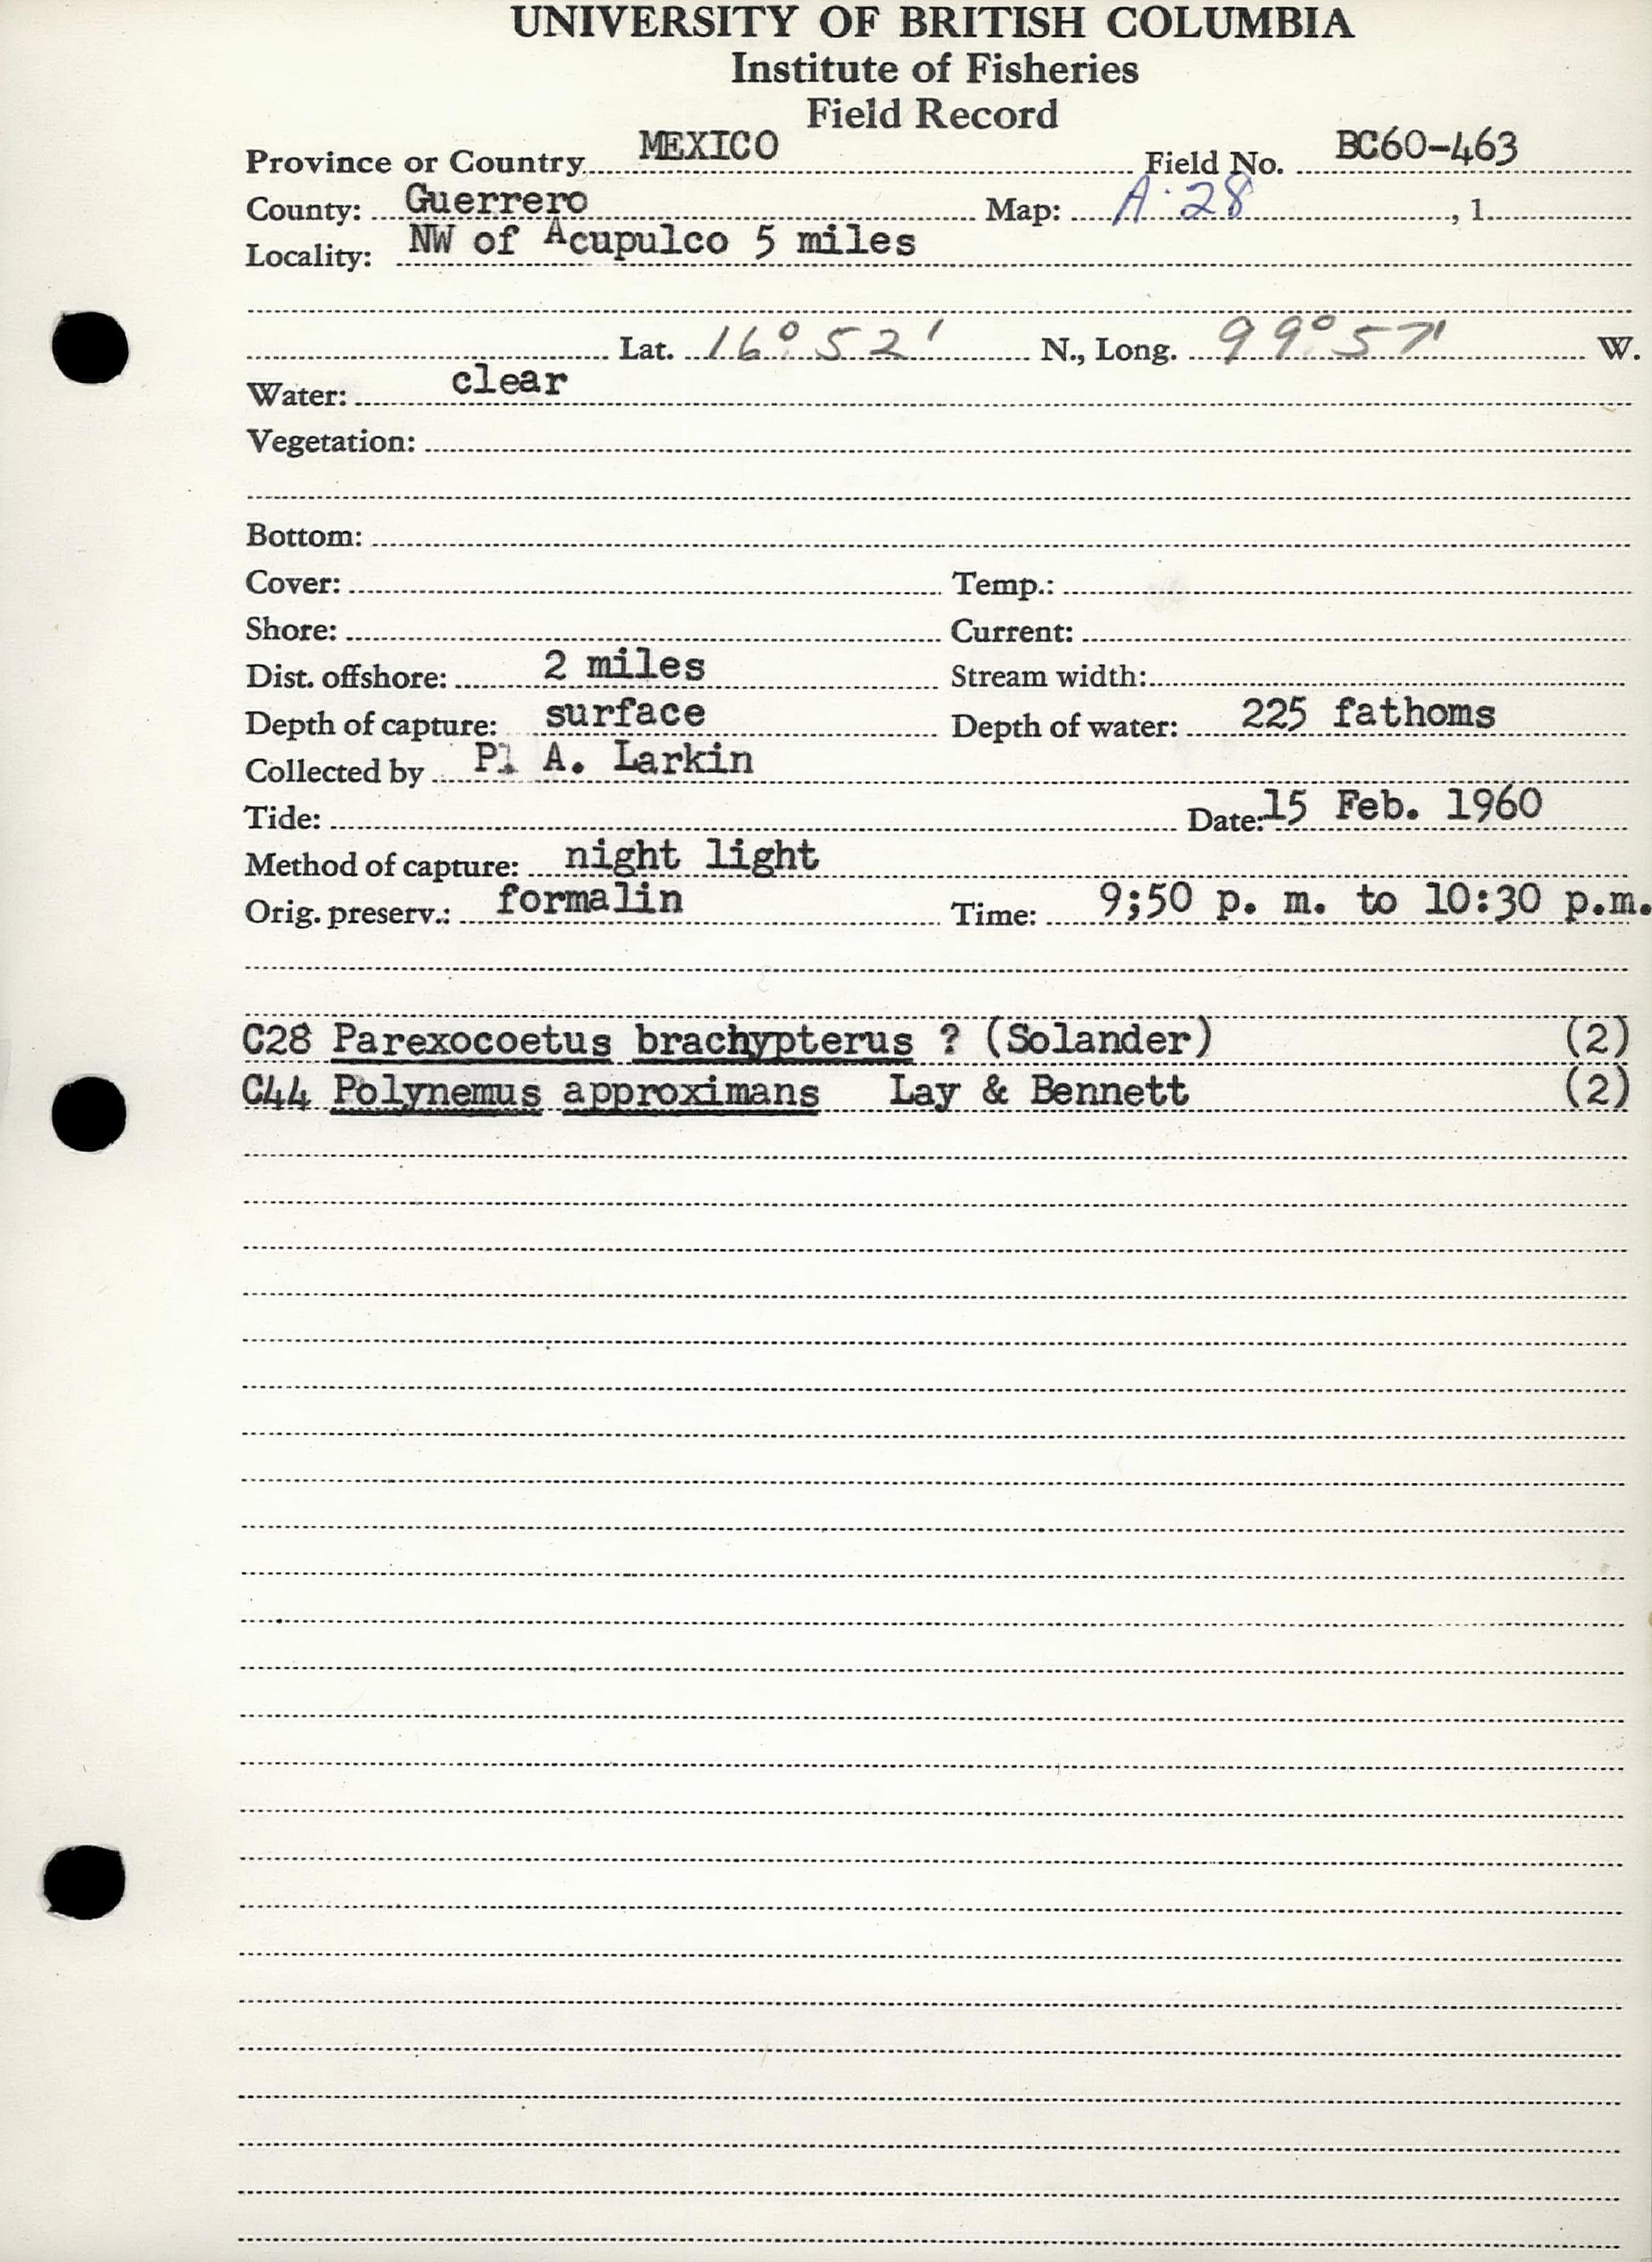 UNIVERSITY OF BRITISH COLUMBIA
Institute of Fisheries
Field Record
Province or Country MEXICO Field No. BC60-463
County: Guerrero Map: A.28 , 1
Locality: NW of Acupulco 5 miles
Lat. 16° 52' N., Long. 99° 57' W.
Water: clear
Vegetation:
Bottom:
Cover: Temp.:
Shore: Current:
Dist. offshore: 2 miles Stream width:
Depth of capture: surface Depth of water: 225 fathoms
Collected by P. A. Larkin
Tide: Date: 15 Feb. 1960
Method of capture: night light
Orig. preserv.: formalin Time: 9;50 p. m. to 10:30 p.m.
C28 Parexocoetus brachypterus ? (Solander) (2)
C44 Polynemus approximans Lay & Bennett (2)